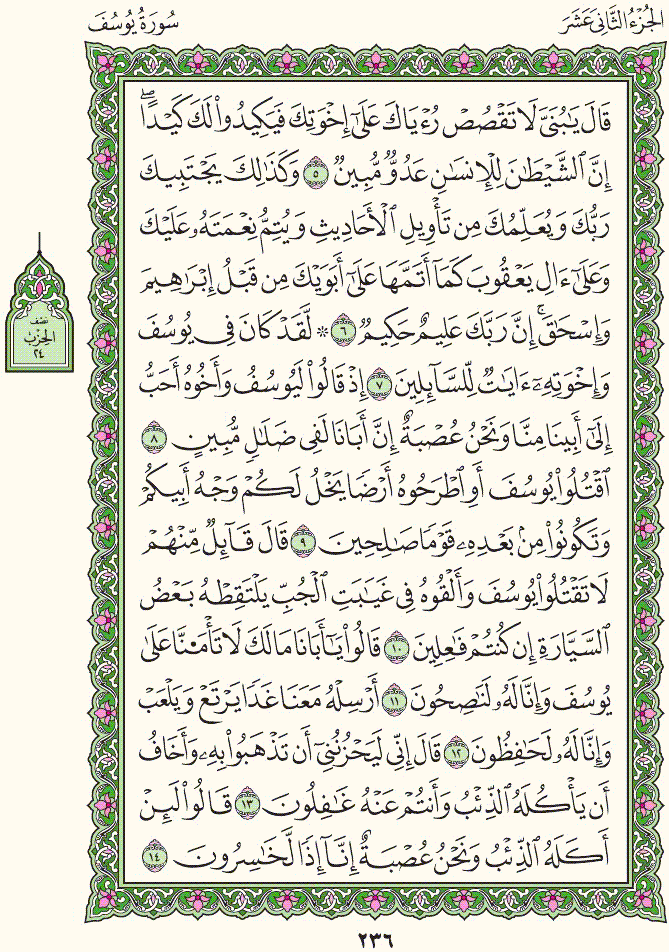 الجُزْءُ الثَّانِي عَشَرَ
سُورَةُ يُوسُفَ
قَالَ يَٰبُنَيَّ لَا تَقْصُصْ رُءْيَاكَ عَلَىٰٓ إِخْوَتِكَ فَيَكِيدُوا۟ لَكَ كَيْدًاۖ
إِنَّ ٱلشَّيْطَٰنَ لِلْإِنسَٰنِ عَدُوٌّ مُّبِينٌ ٥ وَكَذَٰلِكَ يَجْتَبِيكَ
رَبُّكَ وَيُعَلِّمُكَ مِن تَأْوِيلِ ٱلْأَحَادِيثِ وَيُتِمُّ نِعْمَتَهُۥ عَلَيْكَ
وَعَلَىٰٓ ءَالِ يَعْقُوبَ كَمَآ أَتَمَّهَا عَلَىٰٓ أَبَوَيْكَ مِن قَبْلُ إِبْرَٰهِيمَ
وَإِسْحَٰقَۚ إِنَّ رَبَّكَ عَلِيمٌ حَكِيمٌ ٦ * لَّقَدْ كَانَ فِى يُوسُفَ
وَإِخْوَتِهِۦٓ ءَايَٰتٌ لِّلسَّآئِلِينَ ٧ إِذْ قَالُوا۟ لَيُوسُفُ وَأَخُوهُ أَحَبُّ
إِلَىٰٓ أَبِينَا مِنَّا وَنَحْنُ عُصْبَةٌ إِنَّ أَبَانَا لَفِى ضَلَٰلٍ مُّبِينٍ ٨
ٱقْتُلُوا۟ يُوسُفَ أَوِ ٱطْرَحُوهُ أَرْضًا يَخْلُ لَكُمْ وَجْهُ أَبِيكُمْ
وَتَكُونُوا۟ مِنۢ بَعْدِهِۦ قَوْمًا صَٰلِحِينَ ٩ قَالَ قَآئِلٌ مِّنْهُمْ
لَا تَقْتُلُوا۟ يُوسُفَ وَأَلْقُوهُ فِى غَيَٰبَتِ ٱلْجُبِّ يَلْتَقِطْهُ بَعْضُ
ٱلسَّيَّارَةِ إِن كُنتُمْ فَٰعِلِينَ ١٠ قَالُوا۟ يَٰٓأَبَانَا مَا لَكَ لَا تَأْمَ۫نَّا عَلَىٰ
يُوسُفَ وَإِنَّا لَهُۥ لَنَٰصِحُونَ ١١ أَرْسِلْهُ مَعَنَا غَدًا يَرْتَعْ وَيَلْعَبْ
وَإِنَّا لَهُۥ لَحَٰفِظُونَ ١٢ قَالَ إِنِّى لَيَحْزُنُنِىٓ أَن تَذْهَبُوا۟ بِهِۦ وَأَخَافُ
أَن يَأْكُلَهُ ٱلذِّئْبُ وَأَنتُمْ عَنْهُ غَٰفِلُونَ ١٣ قَالُوا۟ لَئِنْ
أَكَلَهُ ٱلذِّئْبُ وَنَحْنُ عُصْبَةٌ إِنَّآ إِذًا لَّخَٰسِرُونَ ١٤
نِصْف
الحِزْب
٢٤
٢٣٦